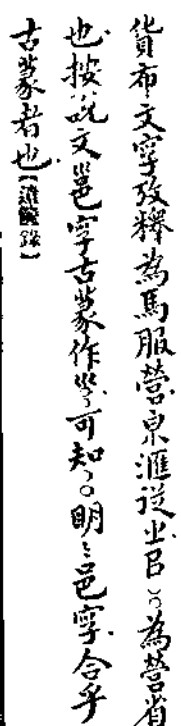 貨布文字攷釋為馬服營泉滙從㞢㠯、為營省
也、按說文邕字古篆作𡿧、可知、。明〻邕字合乎
古篆者也、【遺篋錄】